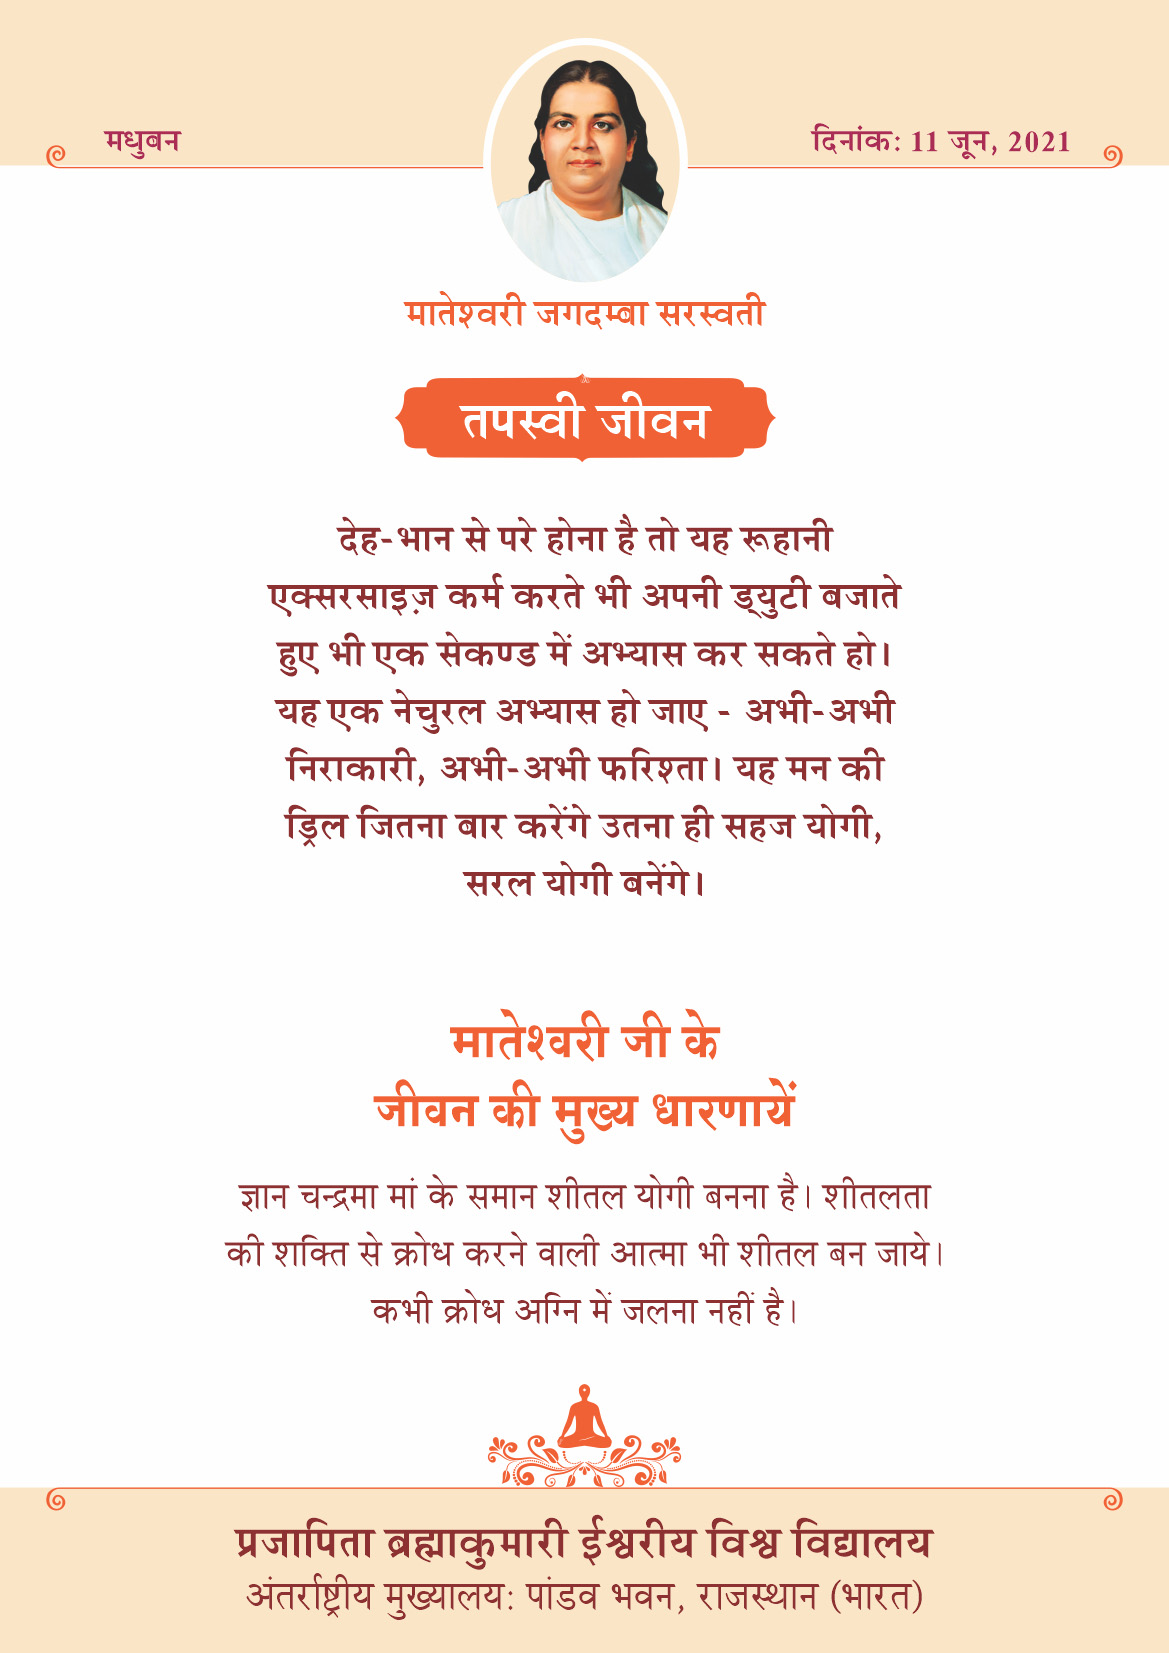 मधुबन
दिनांक: 11 जून, 2021
मातेश्वरी जगदम्बा सरस्वती
तपस्वी जीवन
देह-भान से परे होना है तो यह रूहानी
एक्सरसाइज़ कर्म करते भी अपनी ड्युटी बजाते
हुए भी एक सेकण्ड में अभ्यास कर सकते हो।
यह एक नेचुरल अभ्यास हो जाए - अभी-अभी
निराकारी, अभी-अभी फरिश्ता। यह मन की
ड्रिल जितना बार करेंगे उतना ही सहज योगी,
सरल योगी बनेंगे।
मातेश्वरी जी के
जीवन की मुख्य धारणायें
ज्ञान चन्द्रमा मां के समान शीतल योगी बनना है। शीतलता
की शक्ति से क्रोध करने वाली आत्मा भी शीतल बन जाये।
कभी क्रोध अग्नि में जलना नहीं है।
प्रजापिता ब्रह्माकुमारी ईश्वरीय विश्व विद्यालय
अंतर्राष्ट्रीय मुख्यालय: पांडव भवन, राजस्थान (भारत)